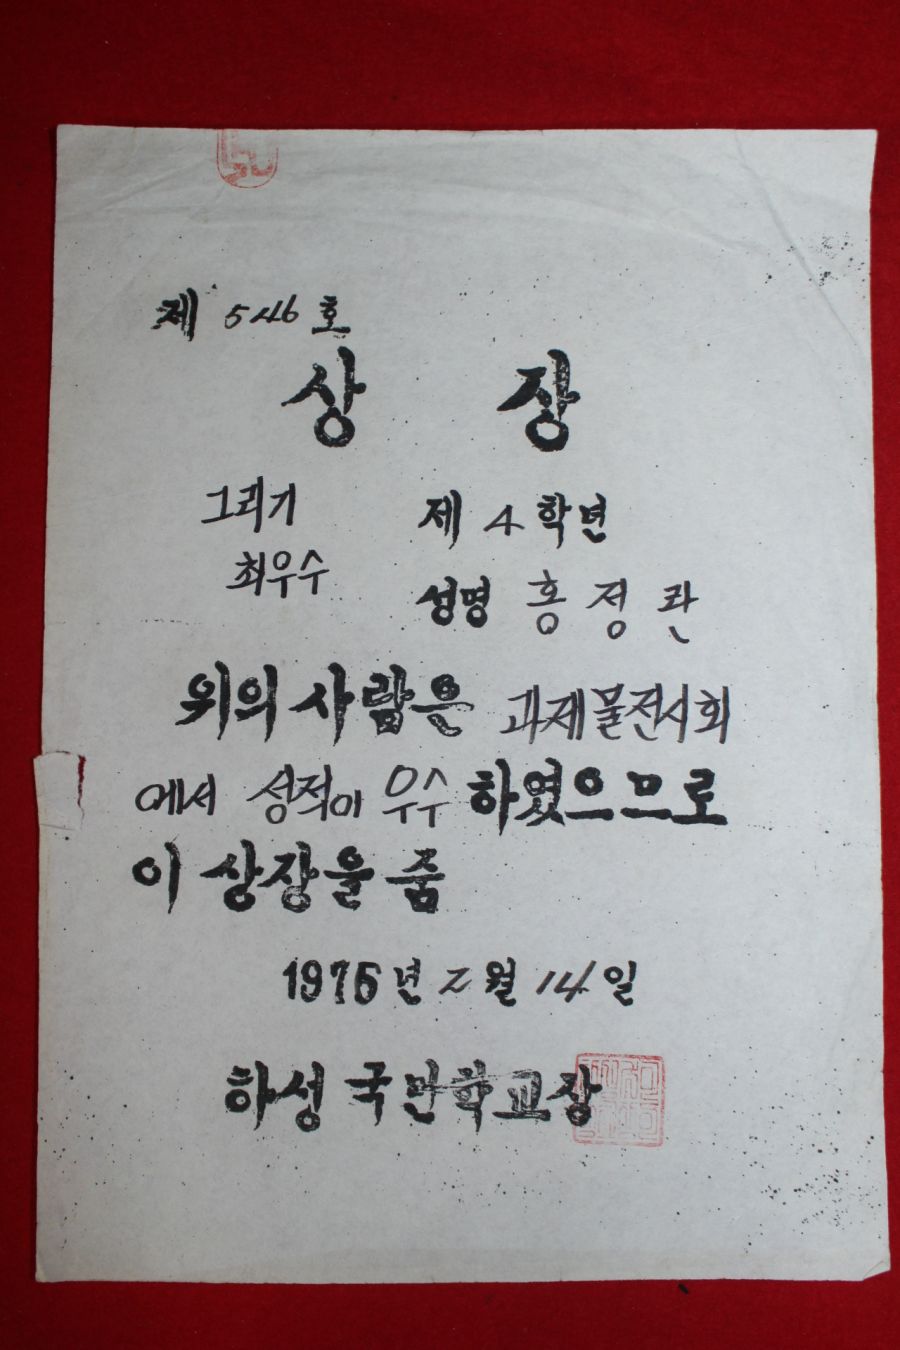 제 546 호
상 장
그리기 제 4 학년
최우수 성명 홍정란
위의 사람은 과제물전시회
에서 성적이 우수 하였으므로
이 상장을 줌
1976년 2월 14일
하성 국민학교장